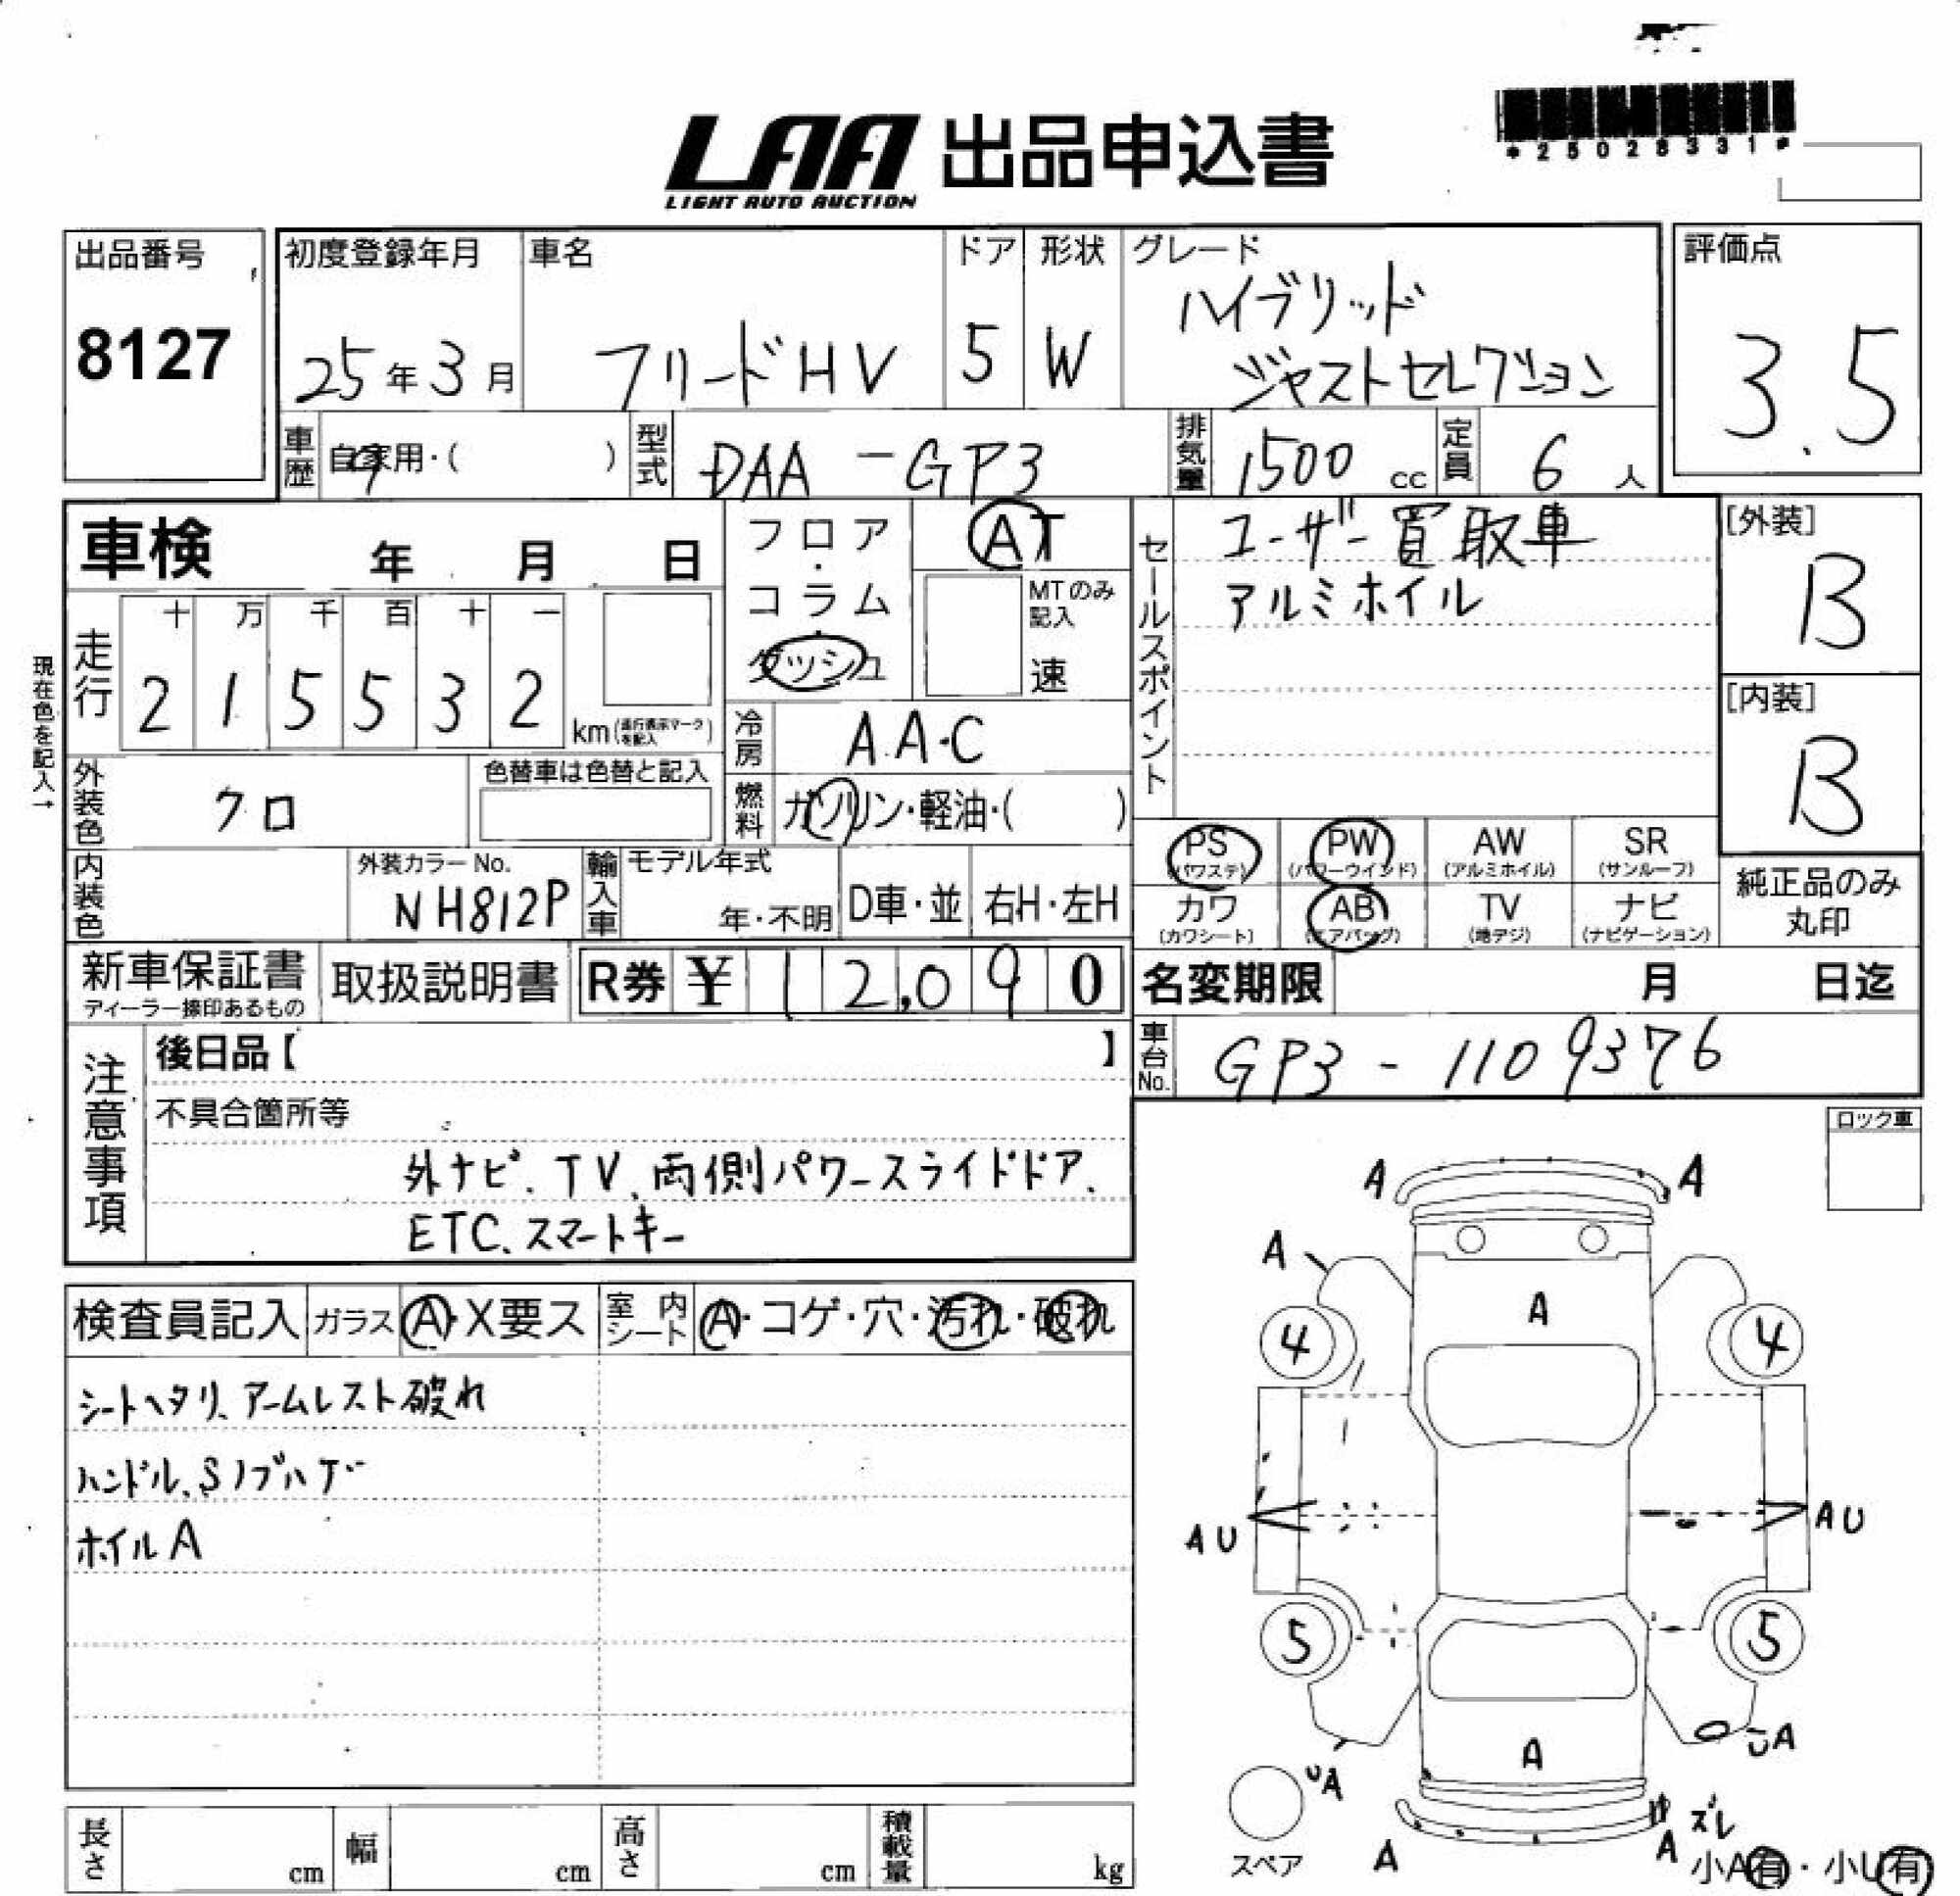 LAA 出品申込書
LIGHT AUTO AUCTION
*25028331*
出品番号
8127
初度登録年月
25年3月
車名
フリードHV
ドア
5
形状
W
グレード
ハイブリッド
ジャストセレクション
評価点
3.5
車歴
自家用・( )
型式
DAA-GP3
排気量
1500 cc
定員
6 人
車検 年 月 日
フロア・コラム・ダッシュ
AT
MTのみ記入
速
セールスポイント
ユーザー買取車
アルミホイル
[外装]
B
[内装]
B
現在色を記入→
走行
十 万 千 百 十 一
2 1 5 5 3 2
km(走行表示マークを記入)
冷房
A.A.C
外装色
クロ
色替車は色替と記入
燃料
ガソリン・軽油・( )
内装色
外装カラーNo.
NH812P
輸入車
モデル年式
年・不明
D車・並
右H・左H
PS (パワステ)
PW (パワーウインド)
AW (アルミホイル)
SR (サンルーフ)
カワ (カワシート)
AB (エアバッグ)
TV (地デジ)
ナビ (ナビゲーション)
純正品のみ丸印
新車保証書
ディーラー捺印あるもの
取扱説明書
R券 ¥ 12,090
名変期限 月 日迄
車台No.
GP3-1109376
注意事項
後日品【 】
不具合箇所等
外ナビ、TV、両側パワースライドドア、
ETC、スマートキー
ロック車
検査員記入
ガラス
A・X要ス
室内シート
A・コゲ・穴・汚れ・破れ
シートヘタリ、アームレスト破れ
ハンドル、Sノブハゲ
ホイルA
A A
A
A
4 4
AU AU
5 5
UA
A
UA
スペア
A
A
ズレ
小A有・小U有
長さ cm
幅 cm
高さ cm
積載量 kg